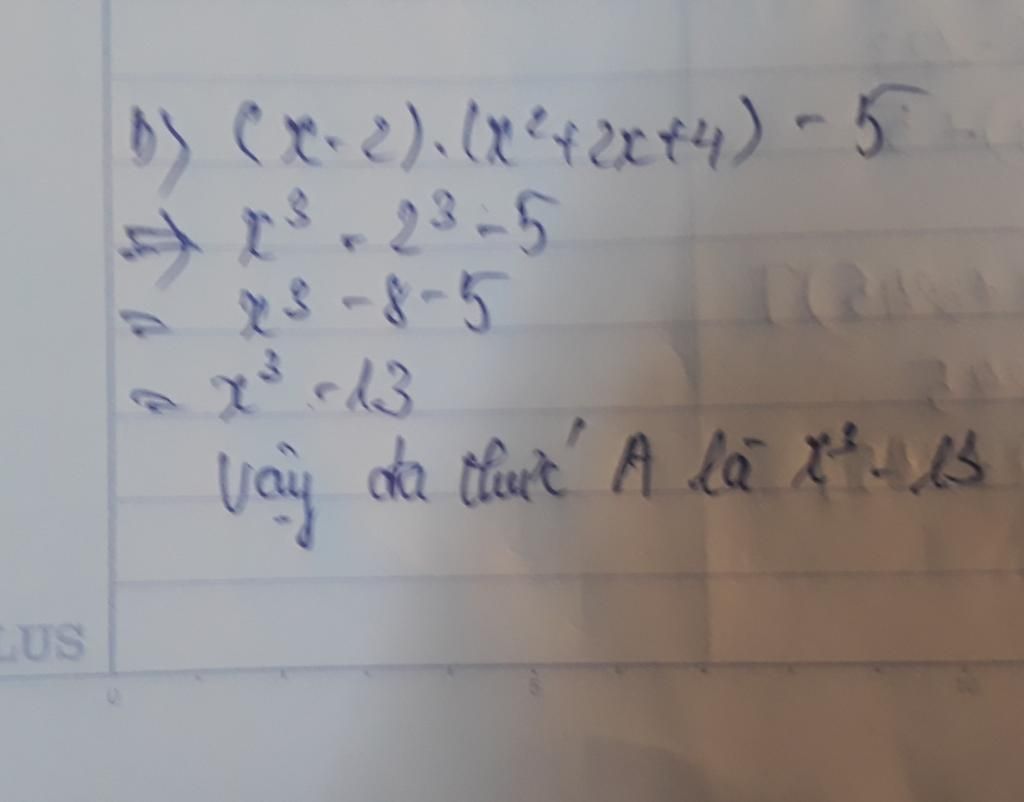 b) (x-2).(x²+2x+4) - 5
=> x³ - 2³ - 5
= x³ - 8 - 5
= x³ - 13
Vậy đa thức A là x³ - 13
LUS
0 5 10